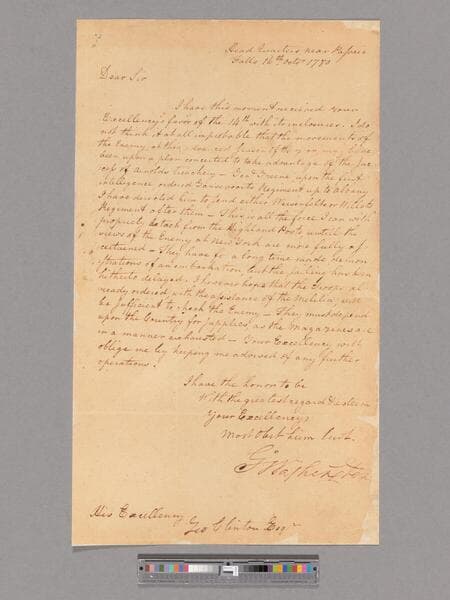 Head Quarters near Passaic
Falls 16th Octr 1780
Dear Sir
I have this moment received your
Excellency's favor of the 14th with its inclosures. I do
not think it at all improbable that the movements of
the Enemy at this advanced season of the year may have
been upon a plan concerted to take advantage of the success
of Arnolds treachery - Genl Greene upon the first
intelligence ordered Gansevoorts Regiment up to Albany
I have directed him to send either Weissenfels or Willets
Regiment after them - This is all the force I can with
propriety detach from the Highland Posts, untill the
views of the Enemy at New York are more fully as
certained - They have for a long time made demon
strations of an embarkation, but the sailing has been
hitherto delayed. I however hope that the Troops al
ready ordered with the assistance of the Militia, will
be sufficient to check the Enemy - They must depend
upon the Country for supplies, as the Magazines are
in a manner exhausted - Your Excellency will
oblige me by keeping me advised of any further
operations.
I have the honor to be
With the greatest regard & esteem
Your Excellency's
Most Obet Hum Servt
Go Washington
His Excellency
Geo Clinton Esqr